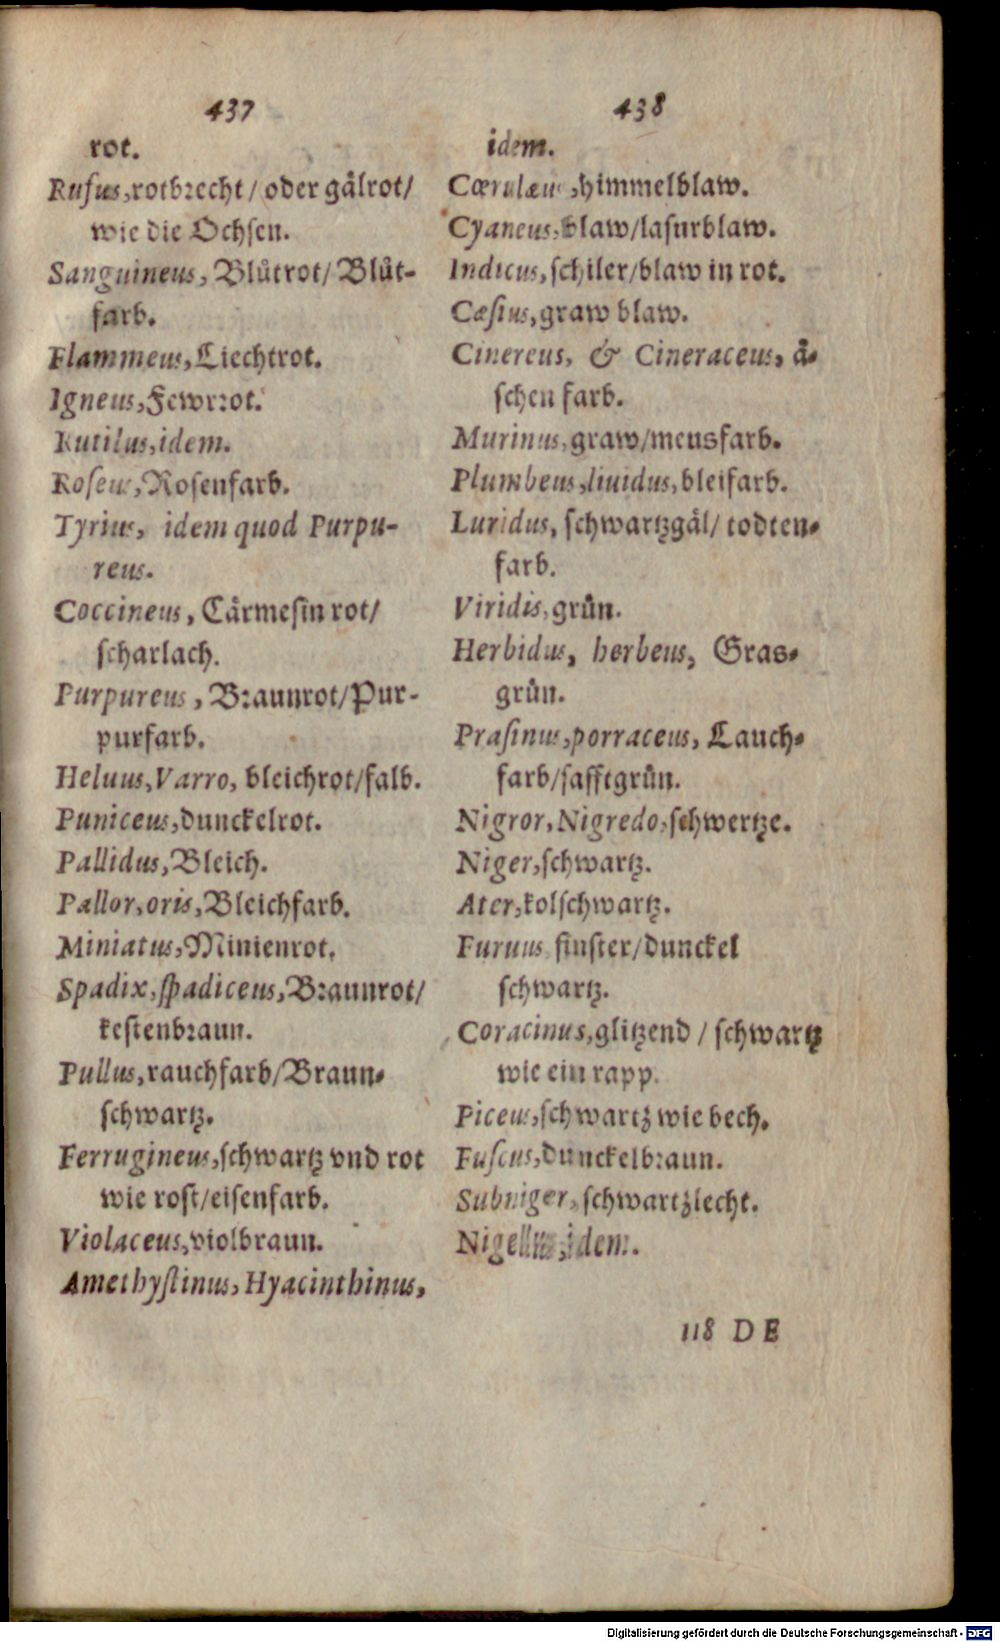 437
rot.
Rufus, rotbrecht / oder gålrot/
wie die Ochsen.
Sanguineus, Blůtrot/ Blůt-
farb.
Flammeus, Liechtrot.
Igneus, Fewrrot.
Rutilus, idem.
Roseus, Rosenfarb.
Tyrius, idem quod Purpu-
reus.
Coccineus, Cårmesin rot/
scharlach.
Purpureus, Braunrot/Pur-
purfarb.
Heluus, Varro, bleichrot/falb.
Puniceus, dunckelrot.
Pallidus, Bleich.
Pallor, oris, Bleichfarb.
Miniatus, Minienrot.
Spadix, spadiceus, Braunrot/
kestenbraun.
Pullus, rauchfarb/Braun-
schwartz.
Ferrugineus, schwartz vnd rot
wie rost/eisenfarb.
Violaceus, violbraun.
Amethystinus, Hyacinthinus,
438
idem.
Cœrulæus, himmelblaw.
Cyaneus, blaw/lasurblaw.
Indicus, schiler/blaw in rot.
Cæsius, graw blaw.
Cinereus, & Cineraceus, å-
schen farb.
Murinus, graw/meusfarb.
Plumbeus, liuidus, bleifarb.
Luridus, schwartzgål/ todten-
farb.
Viridis, grůn.
Herbidus, herbeus, Gras-
grůn.
Prasinus, porraceus, Lauch-
farb/safftgrůn.
Nigror, Nigredo, schwertze.
Niger, schwartz.
Ater, kolschwartz.
Furuus finster/dunckel
schwartz.
Coracinus, glitzend / schwartz
wie ein rapp.
Piceus, schwartz wie bech.
Fuscus, dunckelbraun.
Subniger, schwartzlecht.
Nigellus, idem.
118 DE
Digitalisierung gefördert durch die Deutsche Forschungsgemeinschaft - DFG